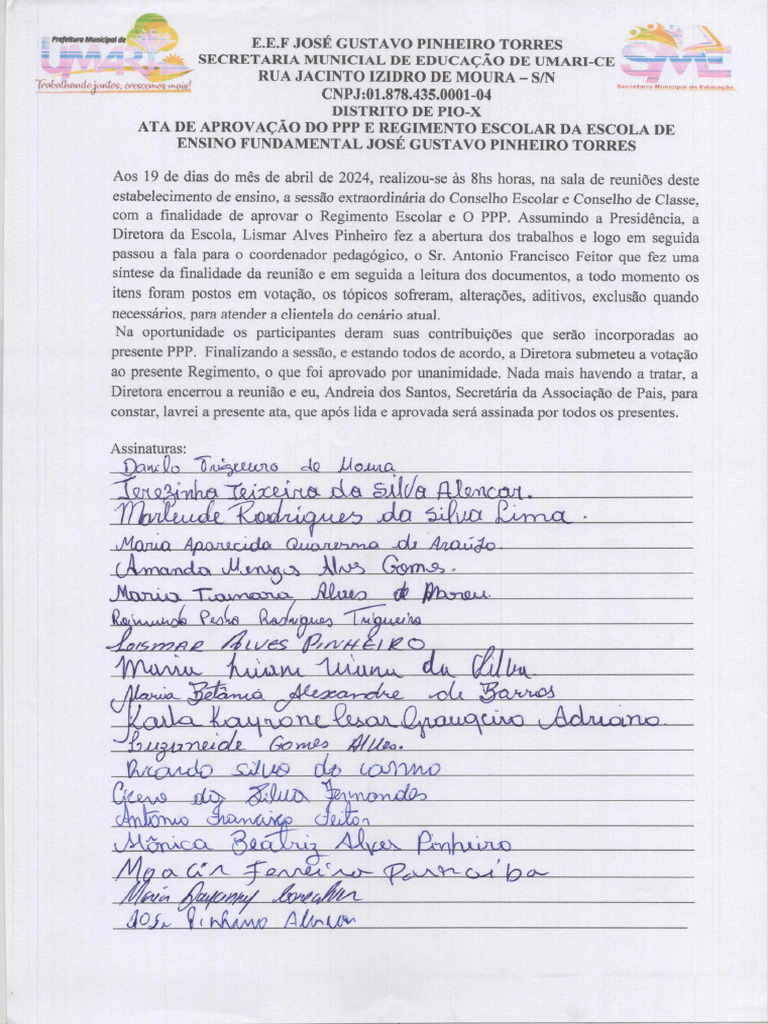 Prefeitura Municipal de
UMARI
Trabalhando juntos, crescemos mais!
SME
Secretaria Municipal de Educação
E.E.F JOSÉ GUSTAVO PINHEIRO TORRES
SECRETARIA MUNICIAL DE EDUCAÇÃO DE UMARI-CE
RUA JACINTO IZIDRO DE MOURA – S/N
CNPJ:01.878.435.0001-04
DISTRITO DE PIO-X
ATA DE APROVAÇÃO DO PPP E REGIMENTO ESCOLAR DA ESCOLA DE
ENSINO FUNDAMENTAL JOSÉ GUSTAVO PINHEIRO TORRES
Aos 19 de dias do mês de abril de 2024, realizou-se às 8hs horas, na sala de reuniões deste
estabelecimento de ensino, a sessão extraordinária do Conselho Escolar e Conselho de Classe,
com a finalidade de aprovar o Regimento Escolar e O PPP. Assumindo a Presidência, a
Diretora da Escola, Lismar Alves Pinheiro fez a abertura dos trabalhos e logo em seguida
passou a fala para o coordenador pedagógico, o Sr. Antonio Francisco Feitor que fez uma
síntese da finalidade da reunião e em seguida a leitura dos documentos, a todo momento os
itens foram postos em votação, os tópicos sofreram, alterações, aditivos, exclusão quando
necessários, para atender a clientela do cenário atual.
Na oportunidade os participantes deram suas contribuições que serão incorporadas ao
presente PPP. Finalizando a sessão, e estando todos de acordo, a Diretora submeteu a votação
ao presente Regimento, o que foi aprovado por unanimidade. Nada mais havendo a tratar, a
Diretora encerrou a reunião e eu, Andreia dos Santos, Secretária da Associação de Pais, para
constar, lavrei a presente ata, que após lida e aprovada será assinada por todos os presentes.
Assinaturas:
Danilo Trigueiro de Moura
Terezinha Teixeira da Silva Alencar.
Marleude Rodrigues da Silva Lima.
Maria Aparecida Quaresma de Araújo.
Amanda Menezes Alves Gomes.
Maria Tamara Alves de Abreu.
Raimundo Pedro Rodrigues Trigueiro
Lismar Alves Pinheiro
Maria Liliani Viana da Silva.
Maria Betânia Alexandre de Barros
Karla Kayrone Cesar Grangeiro Adriano.
Luzuneide Gomes Alves.
Ricardo Silva do Carmo
Cicero da Silva Fernandes
Antonio Francisco Feitor
Mônica Beatriz Alves Pinheiro
Moacir Ferreira Parnaiba
Maria Dayanny Goncalves
José Pinheiro Alencar